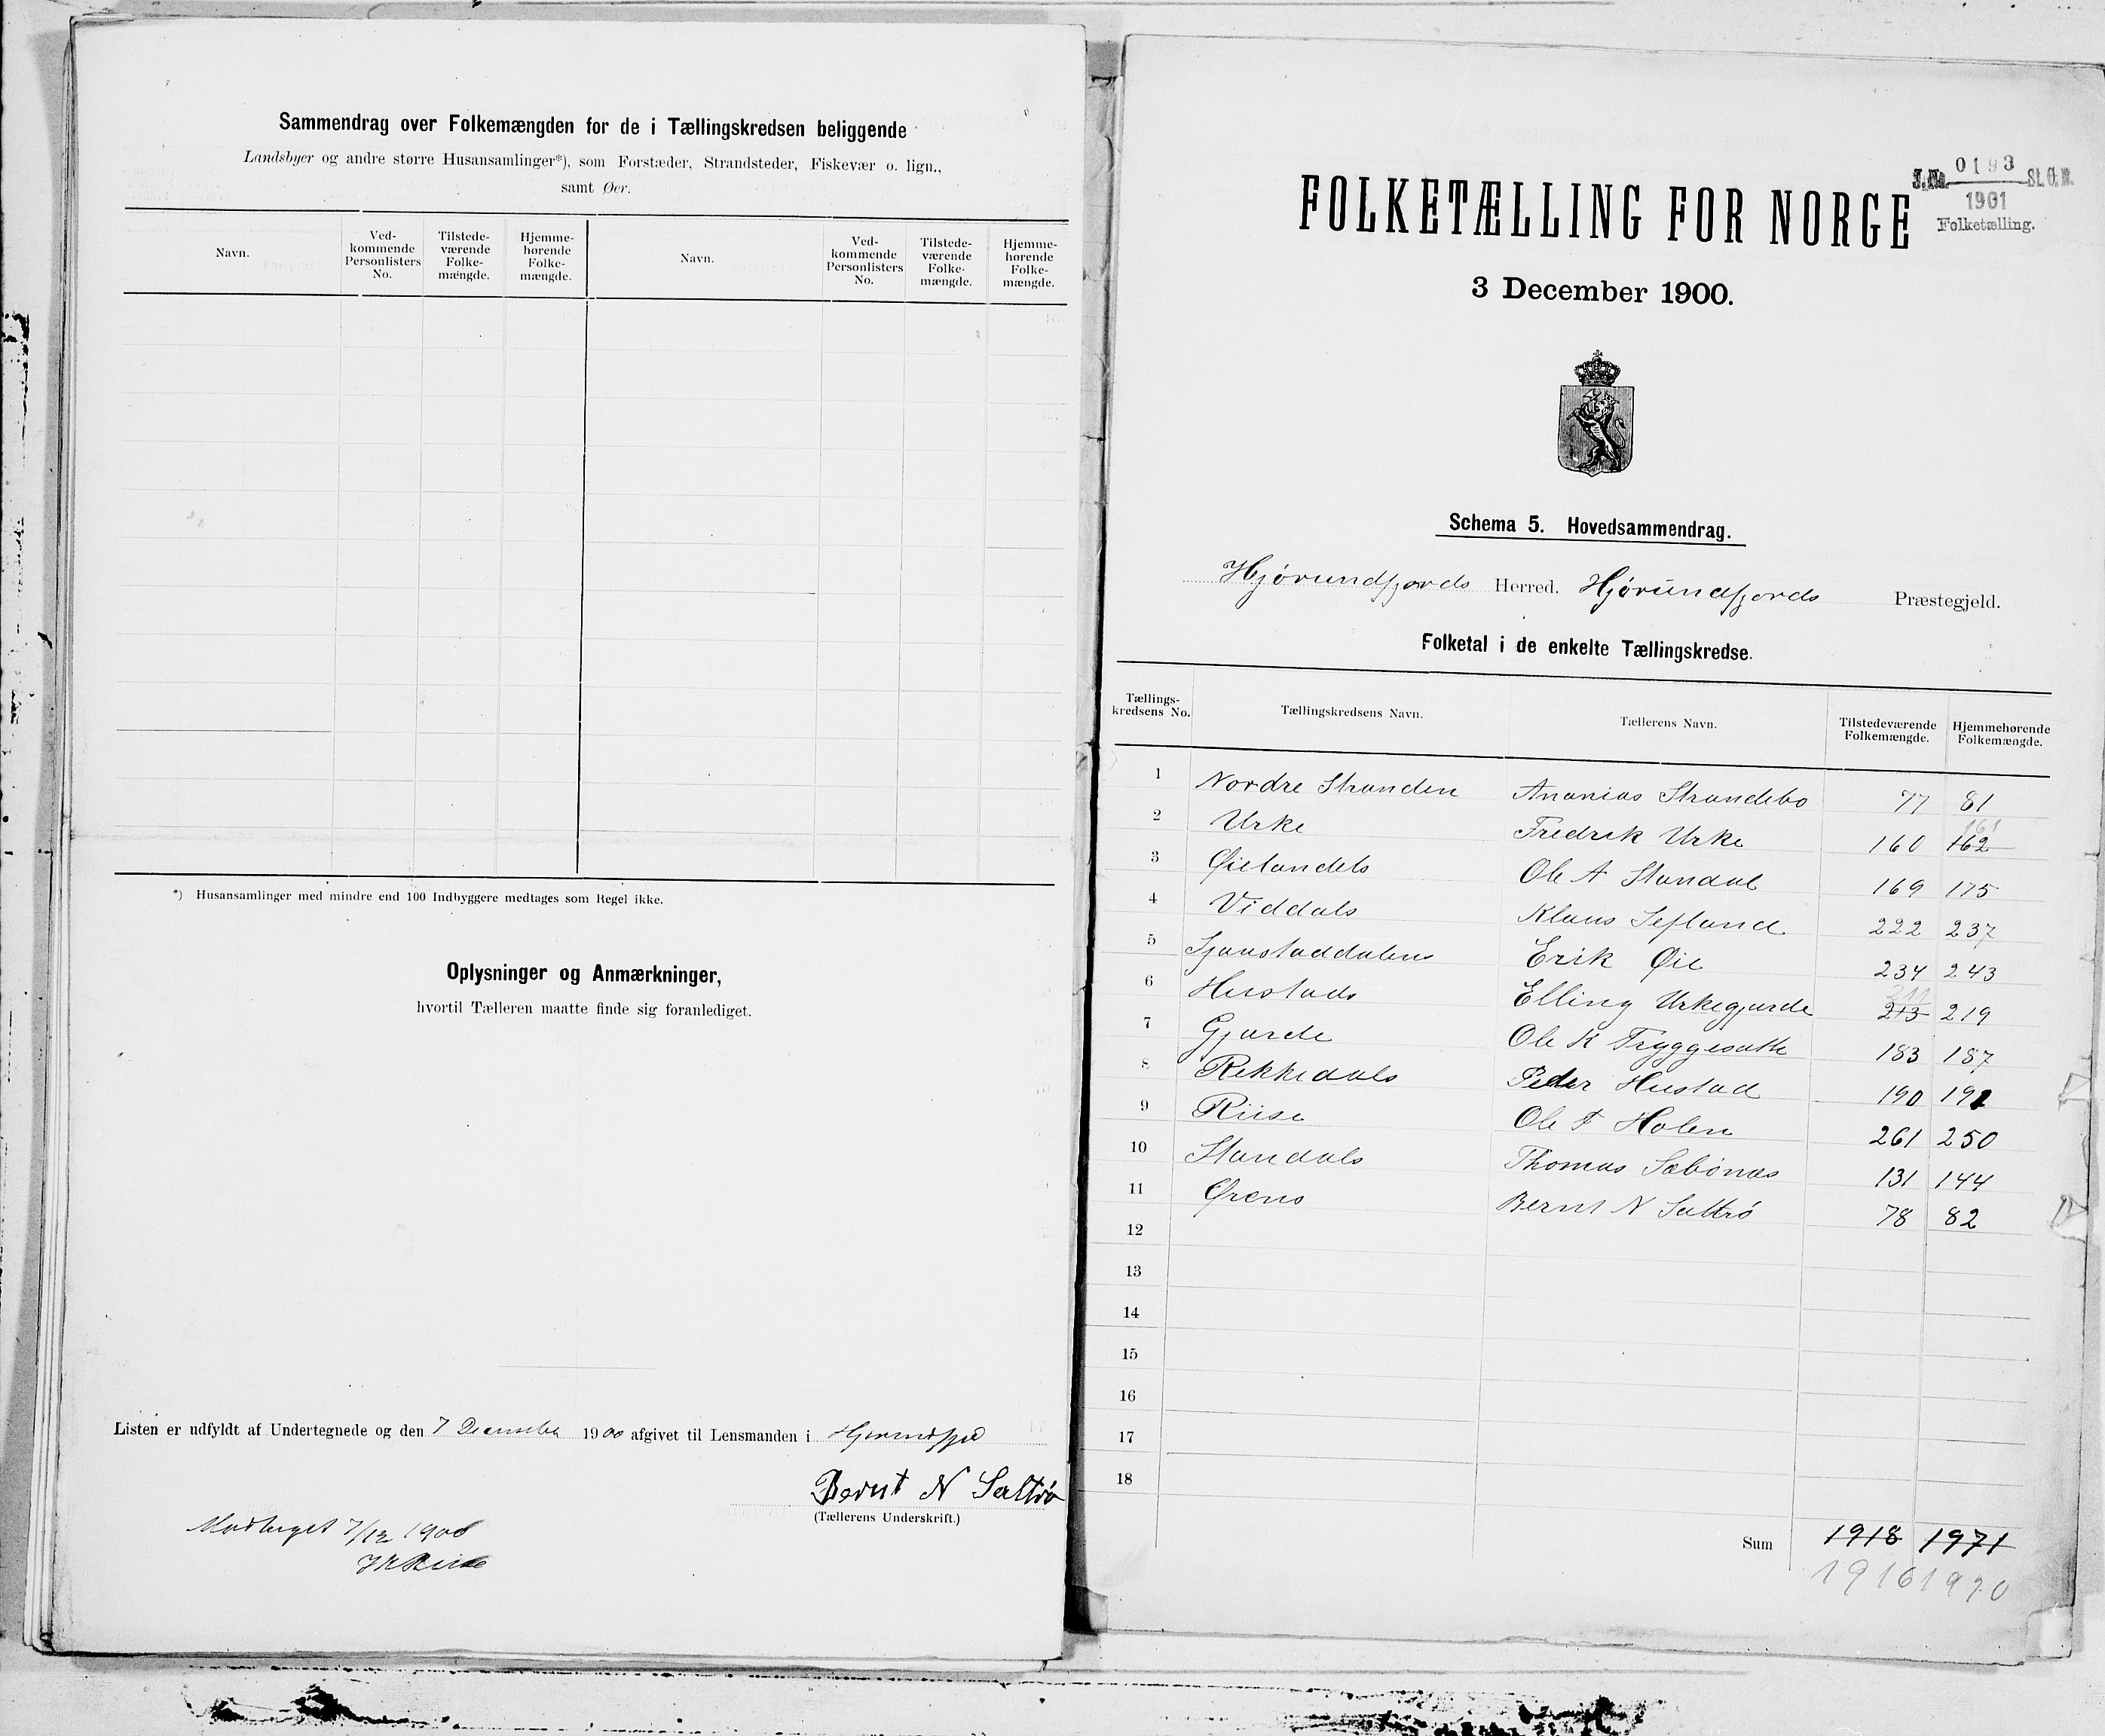 Sammendrag over Folkemængden for de i Tællingskredsen beliggende
Landsbyer og andre større Husansamlinger*), som Forstæder, Strandsteder, Fiskevær o. lign.,
samt Øer.
Navn. Ved-kommende Personlisters No. Tilstede-værende Folke-mængde. Hjemme-hørende Folke-mængde. Navn. Ved-kommende Personlisters No. Tilstede-værende Folke-mængde. Hjemme-hørende Folke-mængde.
*) Husansamlinger med mindre end 100 Indbyggere medtages som Regel ikke.
Oplysninger og Anmærkninger,
hvortil Tælleren maatte finde sig foranlediget.
Listen er udfyldt af Undertegnede og den 7 December 1900 afgivet til Lensmanden i Hjørundfjord
Bernt N Sæltrø
(Tællerens Underskrift.)
Modtaget 7/12 1900
FOLKETÆLLING FOR NORGE
J.No. 0193 St.C.B.
1901
Folketælling.
3 December 1900.
Schema 5. Hovedsammendrag.
Hjørundfjords Herred. Hjørundfjords Præstegjeld.
Folketal i de enkelte Tællingskredse.
Tællings-kredsens No. Tællingskredsens Navn. Tællerens Navn. Tilstedeværende Folkemængde. Hjemmehørende Folkemængde.
1 Nordre Stranden Ananias Strandebo 77 81
161
2 Urke Fredrik Urke 160 162
3 Øielandets Ole A Standal 169 175
4 Viddals Klaus Sefland 222 237
5 Sjaustaddalens Erik Øie 234 243
211
6 Hustads Elling Urkegjærde 213 219
7 Gjærde Ole K Tryggesætte 183 187
8 Rekkedals Peder Hustad 190 191
9 Riise Ole F Holen 261 250
10 Standals Thomas Sæbønes 131 144
11 Ørens Bernt N Sæltrø 78 82
12
13
14
15
16
17
18
Sum 1918 1971
1916 1970